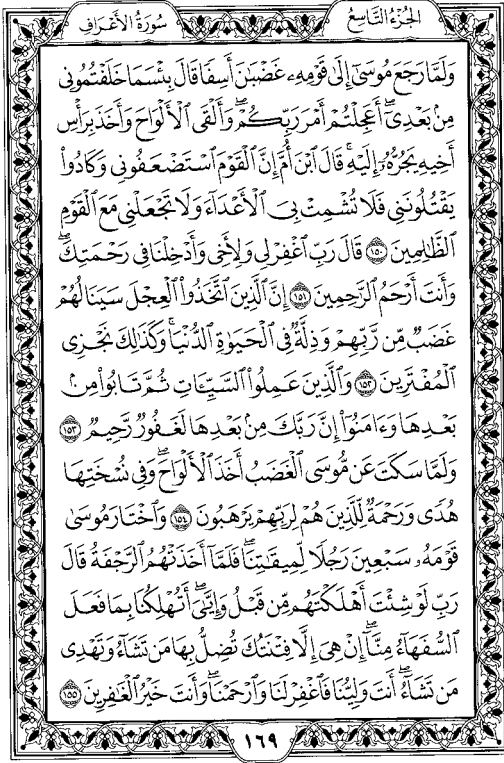 الجُزْءُ التَّاسِعُ
سُورَةُ الأَعْرَافِ
وَلَمَّا رَجَعَ مُوسَىٰٓ إِلَىٰ قَوْمِهِۦ غَضْبَٰنَ أَسِفًا قَالَ بِئْسَمَا خَلَفْتُمُونِى
مِنۢ بَعْدِىٓۖ أَعَجِلْتُمْ أَمْرَ رَبِّكُمْۖ وَأَلْقَى ٱلْأَلْوَاحَ وَأَخَذَ بِرَأْسِ
أَخِيهِ يَجُرُّهُۥٓ إِلَيْهِۚ قَالَ ٱبْنَ أُمَّ إِنَّ ٱلْقَوْمَ ٱسْتَضْعَفُونِى وَكَادُوا۟
يَقْتُلُونَنِى فَلَا تُشْمِتْ بِىَ ٱلْأَعْدَآءَ وَلَا تَجْعَلْنِى مَعَ ٱلْقَوْمِ
ٱلظَّٰلِمِينَ ١٥٠ قَالَ رَبِّ ٱغْفِرْ لِى وَلِأَخِى وَأَدْخِلْنَا فِى رَحْمَتِكَۖ
وَأَنتَ أَرْحَمُ ٱلرَّٰحِمِينَ ١٥١ إِنَّ ٱلَّذِينَ ٱتَّخَذُوا۟ ٱلْعِجْلَ سَيَنَالُهُمْ
غَضَبٌ مِّن رَّبِّهِمْ وَذِلَّةٌ فِى ٱلْحَيَوٰةِ ٱلدُّنْيَاۚ وَكَذَٰلِكَ نَجْزِى
ٱلْمُفْتَرِينَ ١٥٢ وَٱلَّذِينَ عَمِلُوا۟ ٱلسَّيِّـَٔاتِ ثُمَّ تَابُوا۟ مِنۢ
بَعْدِهَا وَءَامَنُوٓا۟ إِنَّ رَبَّكَ مِنۢ بَعْدِهَا لَغَفُورٌ رَّحِيمٌ ١٥٣
وَلَمَّا سَكَتَ عَن مُّوسَى ٱلْغَضَبُ أَخَذَ ٱلْأَلْوَاحَۖ وَفِى نُسْخَتِهَا
هُدًى وَرَحْمَةٌ لِّلَّذِينَ هُمْ لِرَبِّهِمْ يَرْهَبُونَ ١٥٤ وَٱخْتَارَ مُوسَىٰ
قَوْمَهُۥ سَبْعِينَ رَجُلًا لِّمِيقَٰتِنَاۖ فَلَمَّآ أَخَذَتْهُمُ ٱلرَّجْفَةُ قَالَ
رَبِّ لَوْ شِئْتَ أَهْلَكْتَهُم مِّن قَبْلُ وَإِيَّٰىَۖ أَتُهْلِكُنَا بِمَا فَعَلَ
ٱلسُّفَهَآءُ مِنَّآۖ إِنْ هِىَ إِلَّا فِتْنَتُكَ تُضِلُّ بِهَا مَن تَشَآءُ وَتَهْدِى
مَن تَشَآءُۖ أَنتَ وَلِيُّنَا فَٱغْفِرْ لَنَا وَٱرْحَمْنَاۖ وَأَنتَ خَيْرُ ٱلْغَٰفِرِينَ ١٥٥
١٦٩